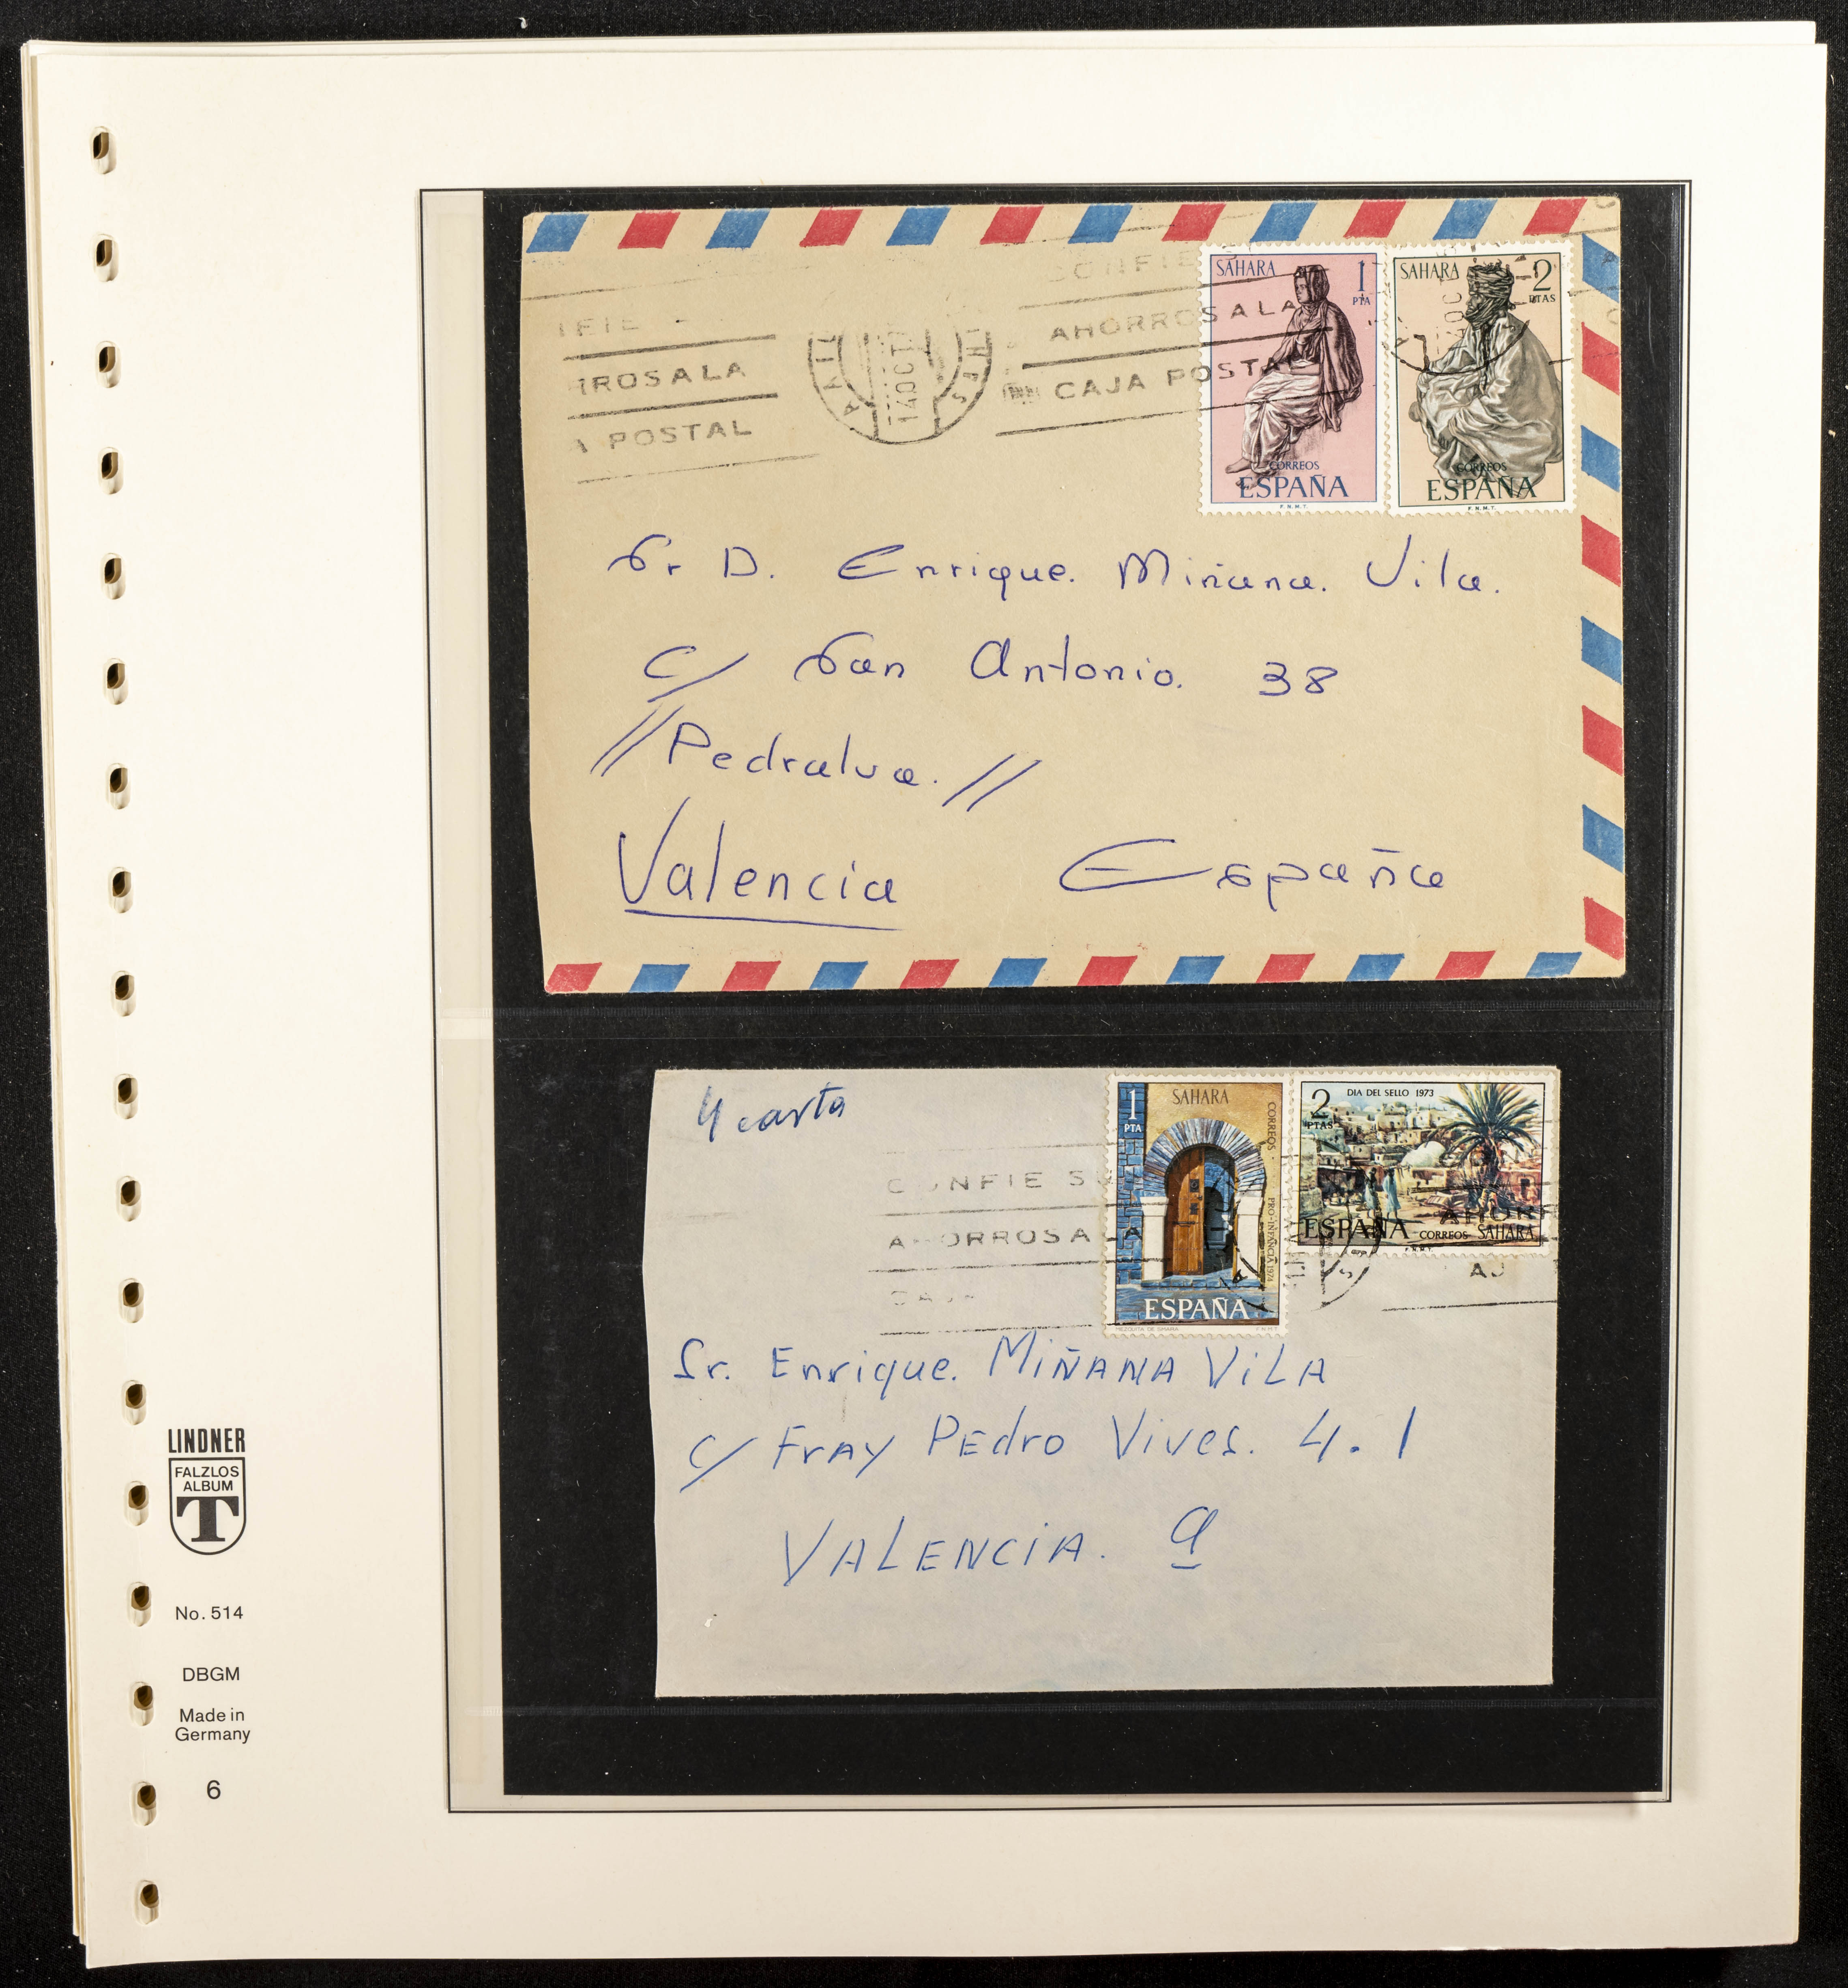 IFIE
RROS A LA
A POSTAL
14 OCT
CONFIE
AHORROS A LA
CAJA POSTAL
SAHARA 1 PTA
CORREOS
ESPAÑA
F.N.M.T.
SAHARA 2 PTAS
CORREOS
ESPAÑA
F.N.M.T.
Sr D. Enrique. Miñana. Vila.
c/ San Antonio. 38
//Pedralva.//
Valencia España
4 carta
CONFIE S
AHORROS A LA
CAJA
1 PTA
SAHARA
CORREOS · PRO-INFANCIA 1974
ESPAÑA
F.N.M.T.
2 PTAS
DIA DEL SELLO 1973
ESPAÑA CORREOS SAHARA
F.N.M.T.
AHORR
AJ
Sr. Enrique. MIÑANA VILA
c/ FrAy PEdro Vives. 4. 1
VALENCIA. 9
LINDNER
FALZLOS
ALBUM
T
No. 514
DBGM
Made in
Germany
6